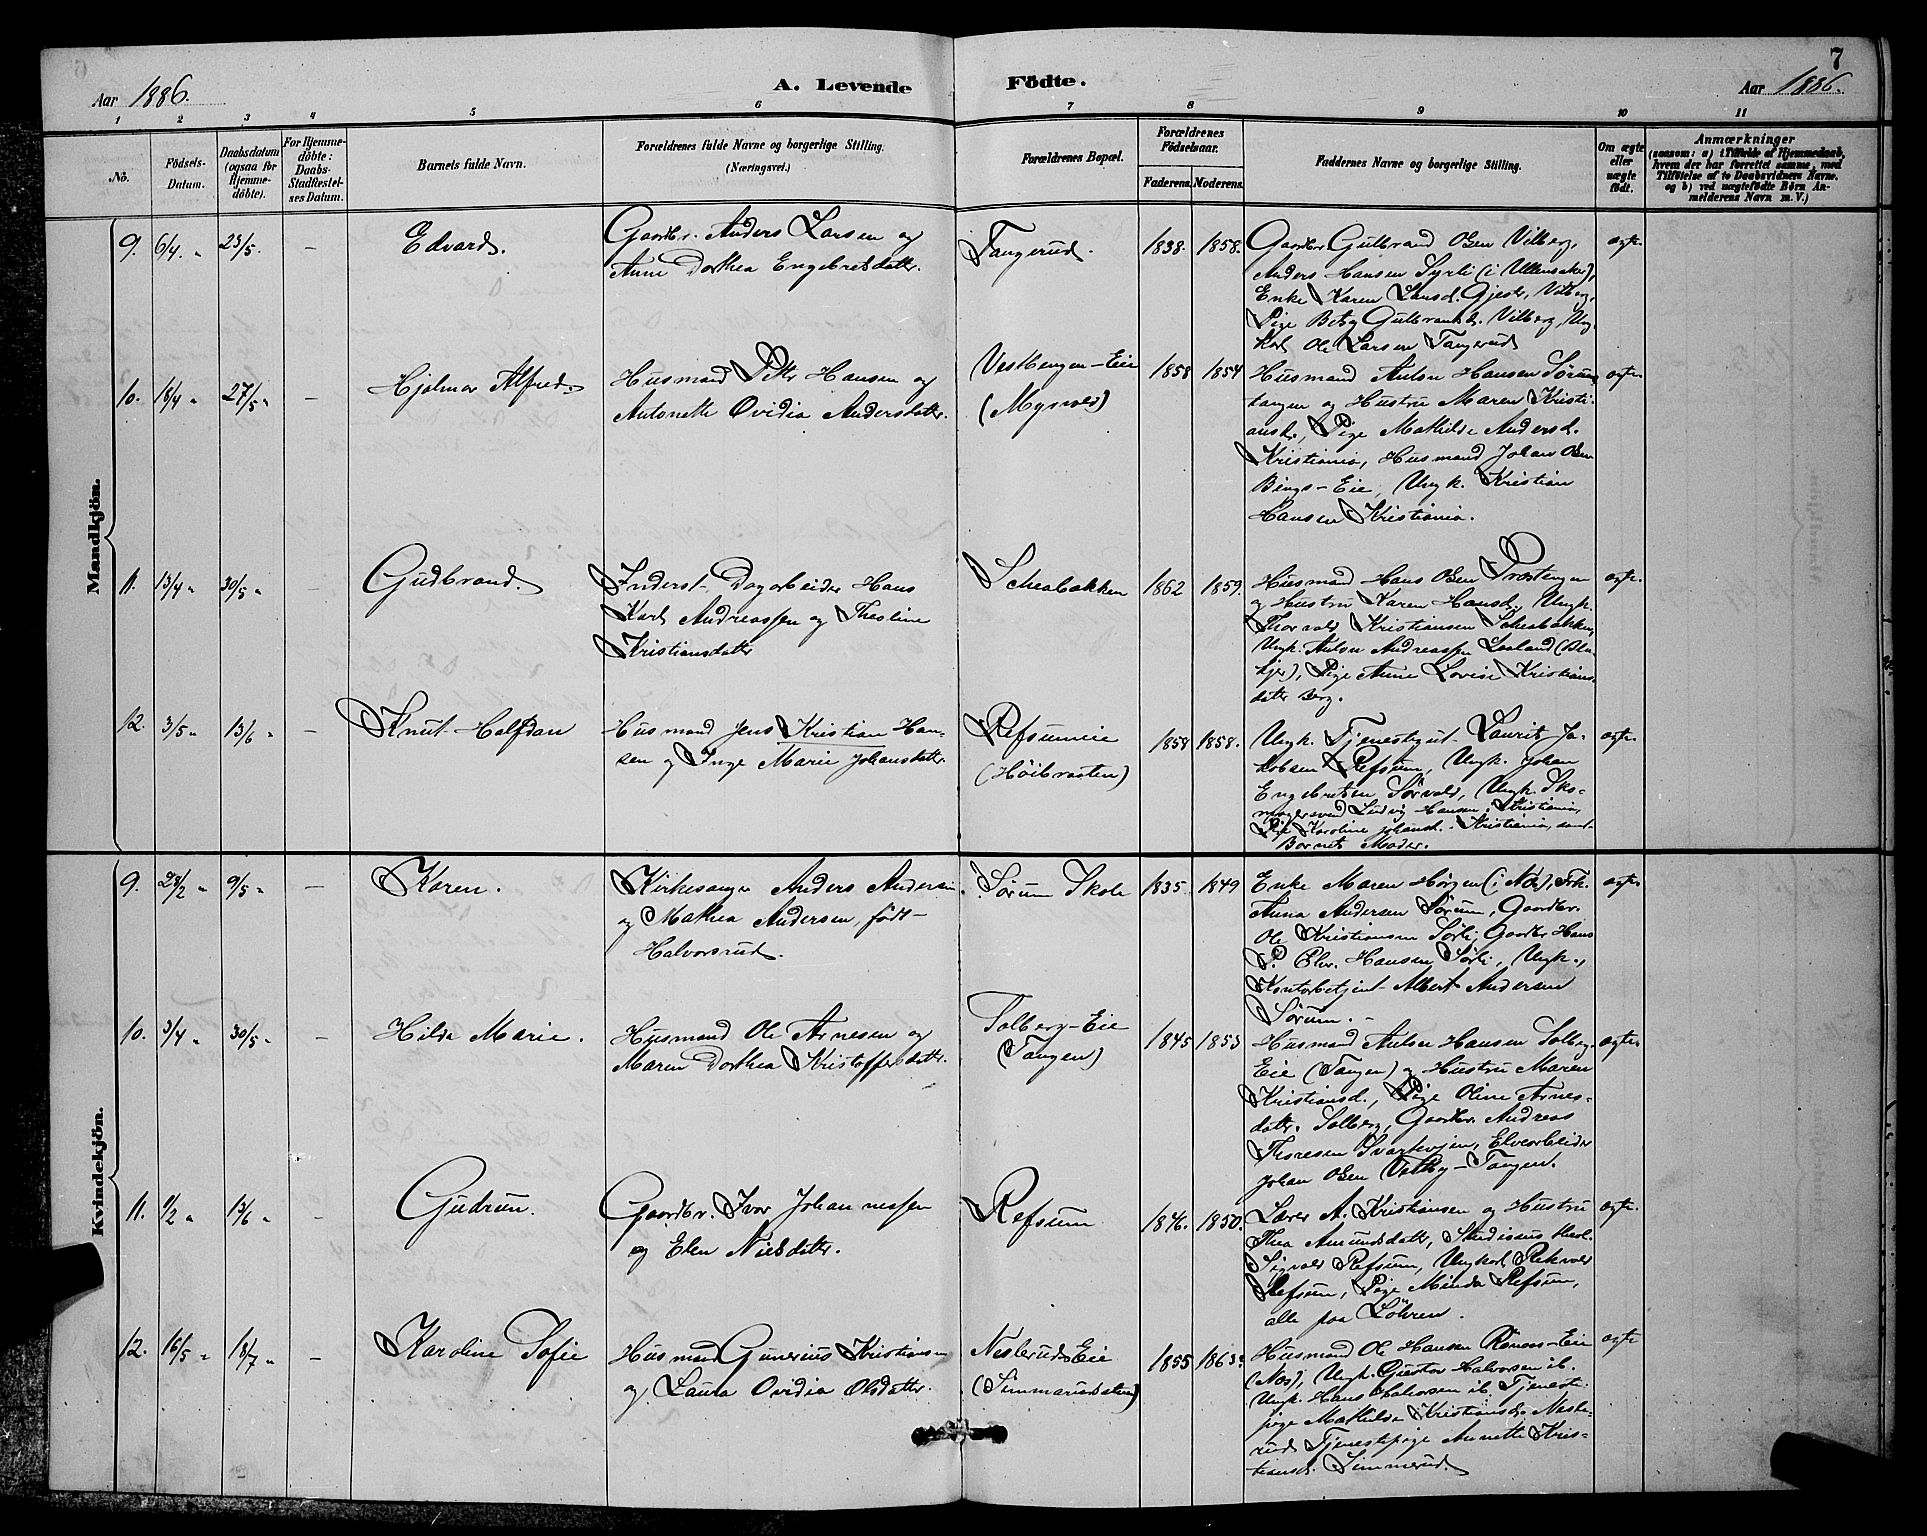 7
Aar 1886.
A. Levende Födte.
Aar 1886.
1 2 3 4 5 6 7 8 9 10 11
No.
Födsels-Datum.
Daabsdatum (ogsaa for Hjemmedöbte).
For Hjemmedöbte: Daabs-Stadfestelses Datum.
Barnets fulde Navn.
Forældrenes fulde Navne og borgerlige Stilling. (Næringsvei.)
Forældrenes Bopæl.
Forældrenes Födselsaar.
Faderens. Moderens.
Faddernes Navne og borgerlige Stilling.
Om ægte eller uægte födt.
Anmærkninger
(saasom: a) i Tilfælde af Hjemmedaab, hvem der har forrettet samme, med Tilföielse af to Daabsvidners Navne. og b) ved uægtefödte Börn Anmelderens Navn m. V.)
Mandkjön.
9. 6/4 " 23/5. – Edvard.
Gaardbr. Anders Larsen og
Anne Dorthea Engebretsdatter.
Tangerud. 1838. 1858.
Gaardbr. Gulbrand Olsen Vilberg,
Anders Hansen Syrli (i Ullensaker),
Enke Karen Larsd. Gjestr, Vilberg,
Pige Betsy Gulbrandsd. Vilberg, Ung-
karl Ole Larsen Tangerud
ægte.
10. 16/4 " 27/5 " – Hjalmar Alfred.
Husmand Petter Hansen og
Antonette Ovidia Andersdatter.
Vestbengen-Eie
(Mysvold)
1858 1854
Husmand Anton Hansen Sørum-
tangen og Hustru Maren Kristi-
ansd., Pige Mathilde Andersd.
Kristiania, Husmand Johan Olsen
Bings-Eie, Ungk. Kristian
Hansen Kristiania.
ægte.
11. 13/4 " 30/5 " – Gudbrand.
Inderst Dagarbeider Hans
Karl Andreassen og Thesline
Kristiansdatter
Scheabakken 1862 1859.
Husmand Hans Olsen Præstengen
og Hustru Karen Hansd., Ungk.
Thorvald Kristiansen Scheabakken,
Ungk. Anton Andreassen Laaland (Bla-
kjer), Pige Anne Lovise Kristians-
datter Berg.
ægte.
12. 3/5 " 13/6 " – Knut Halfdan
Husmand Jens Kristian Han-
sen og Inge Marie Johansdatter.
Refsumeie
(Høibraaten)
1858 1858.
Ungk. Tjenestegut Laurits Ja-
kobsen Refsum, Ungk. Johan
Engebretsen Sørvald, Ungk. Sko-
magersvend Ludvig Hansen, Kristiania,
Pige Karoline Johansd. Kristiania, samt
Barnets Moder.
ægte.
Kvindekjön.
9. 28/2 " 9/5 " – Karen.
Kirkesanger Anders Andersen
og Mathea Andersen, født
Halvorsrud.
Sørum Skole 1835. 1849
Enke Maren Hørgen (i Næs), Frk.
Anna Andersen Sørum, Gaardbr.
Ole Kristiansen Sørli, Gaardbr Hans
P. Elv. Hansen Sørli, Ungk.,
Kontorbetjent Albert Andersen
Sørum. –
ægte.
10. 3/4 " 30/5 " – Hilda Marie.
Husmand Ole Arnesen og
Maren Dorthea Kristoffersdatter.
Solberg-Eie
(Tangen)
1845 1853
Husmand Anton Hansen Solberg-
Eie (Tangen) og Hustru Maren
Kristiansd., Pige Oline Arnes-
datter Solberg, Gaardbr. Andreas
Thoresen Svarthøien, Elvearbeider
Johan Olsen Valby-Tangen.
ægte.
11. 9/2 " 13/6 " – Gudrun.
Gaardbr. Ivar Johannessen
og Elen Nielsdatter.
Refsum 1846. 1850.
Lærer A. Kristiansen og Hustru
Thea Amundsdatter, Studiosus theol.
Sigvald Refsum, Ungkarl Rekvald
Refsum, Pige Minda Refsum,
alle paa Løhren.
ægte.
12. 16/5 " 18/7 " – Karoline Sofie
Husmand Gunerius Kristiansen
og Laura Ovidia Olsdatter.
Neslerud Eie
(Simmarudsdalen)
1855 1863.
Husmand Ole Hansen Rønnes-Eie
(Næs), Ungk. Gustav Halvorsen ib.
Ungk. Hans Halvorsen ib. Tjeneste-
pige Mathilde Kristiansd. Nesle-
rud Tjenestepige Annette Kris-
tiansd. Simmerud.
ægte